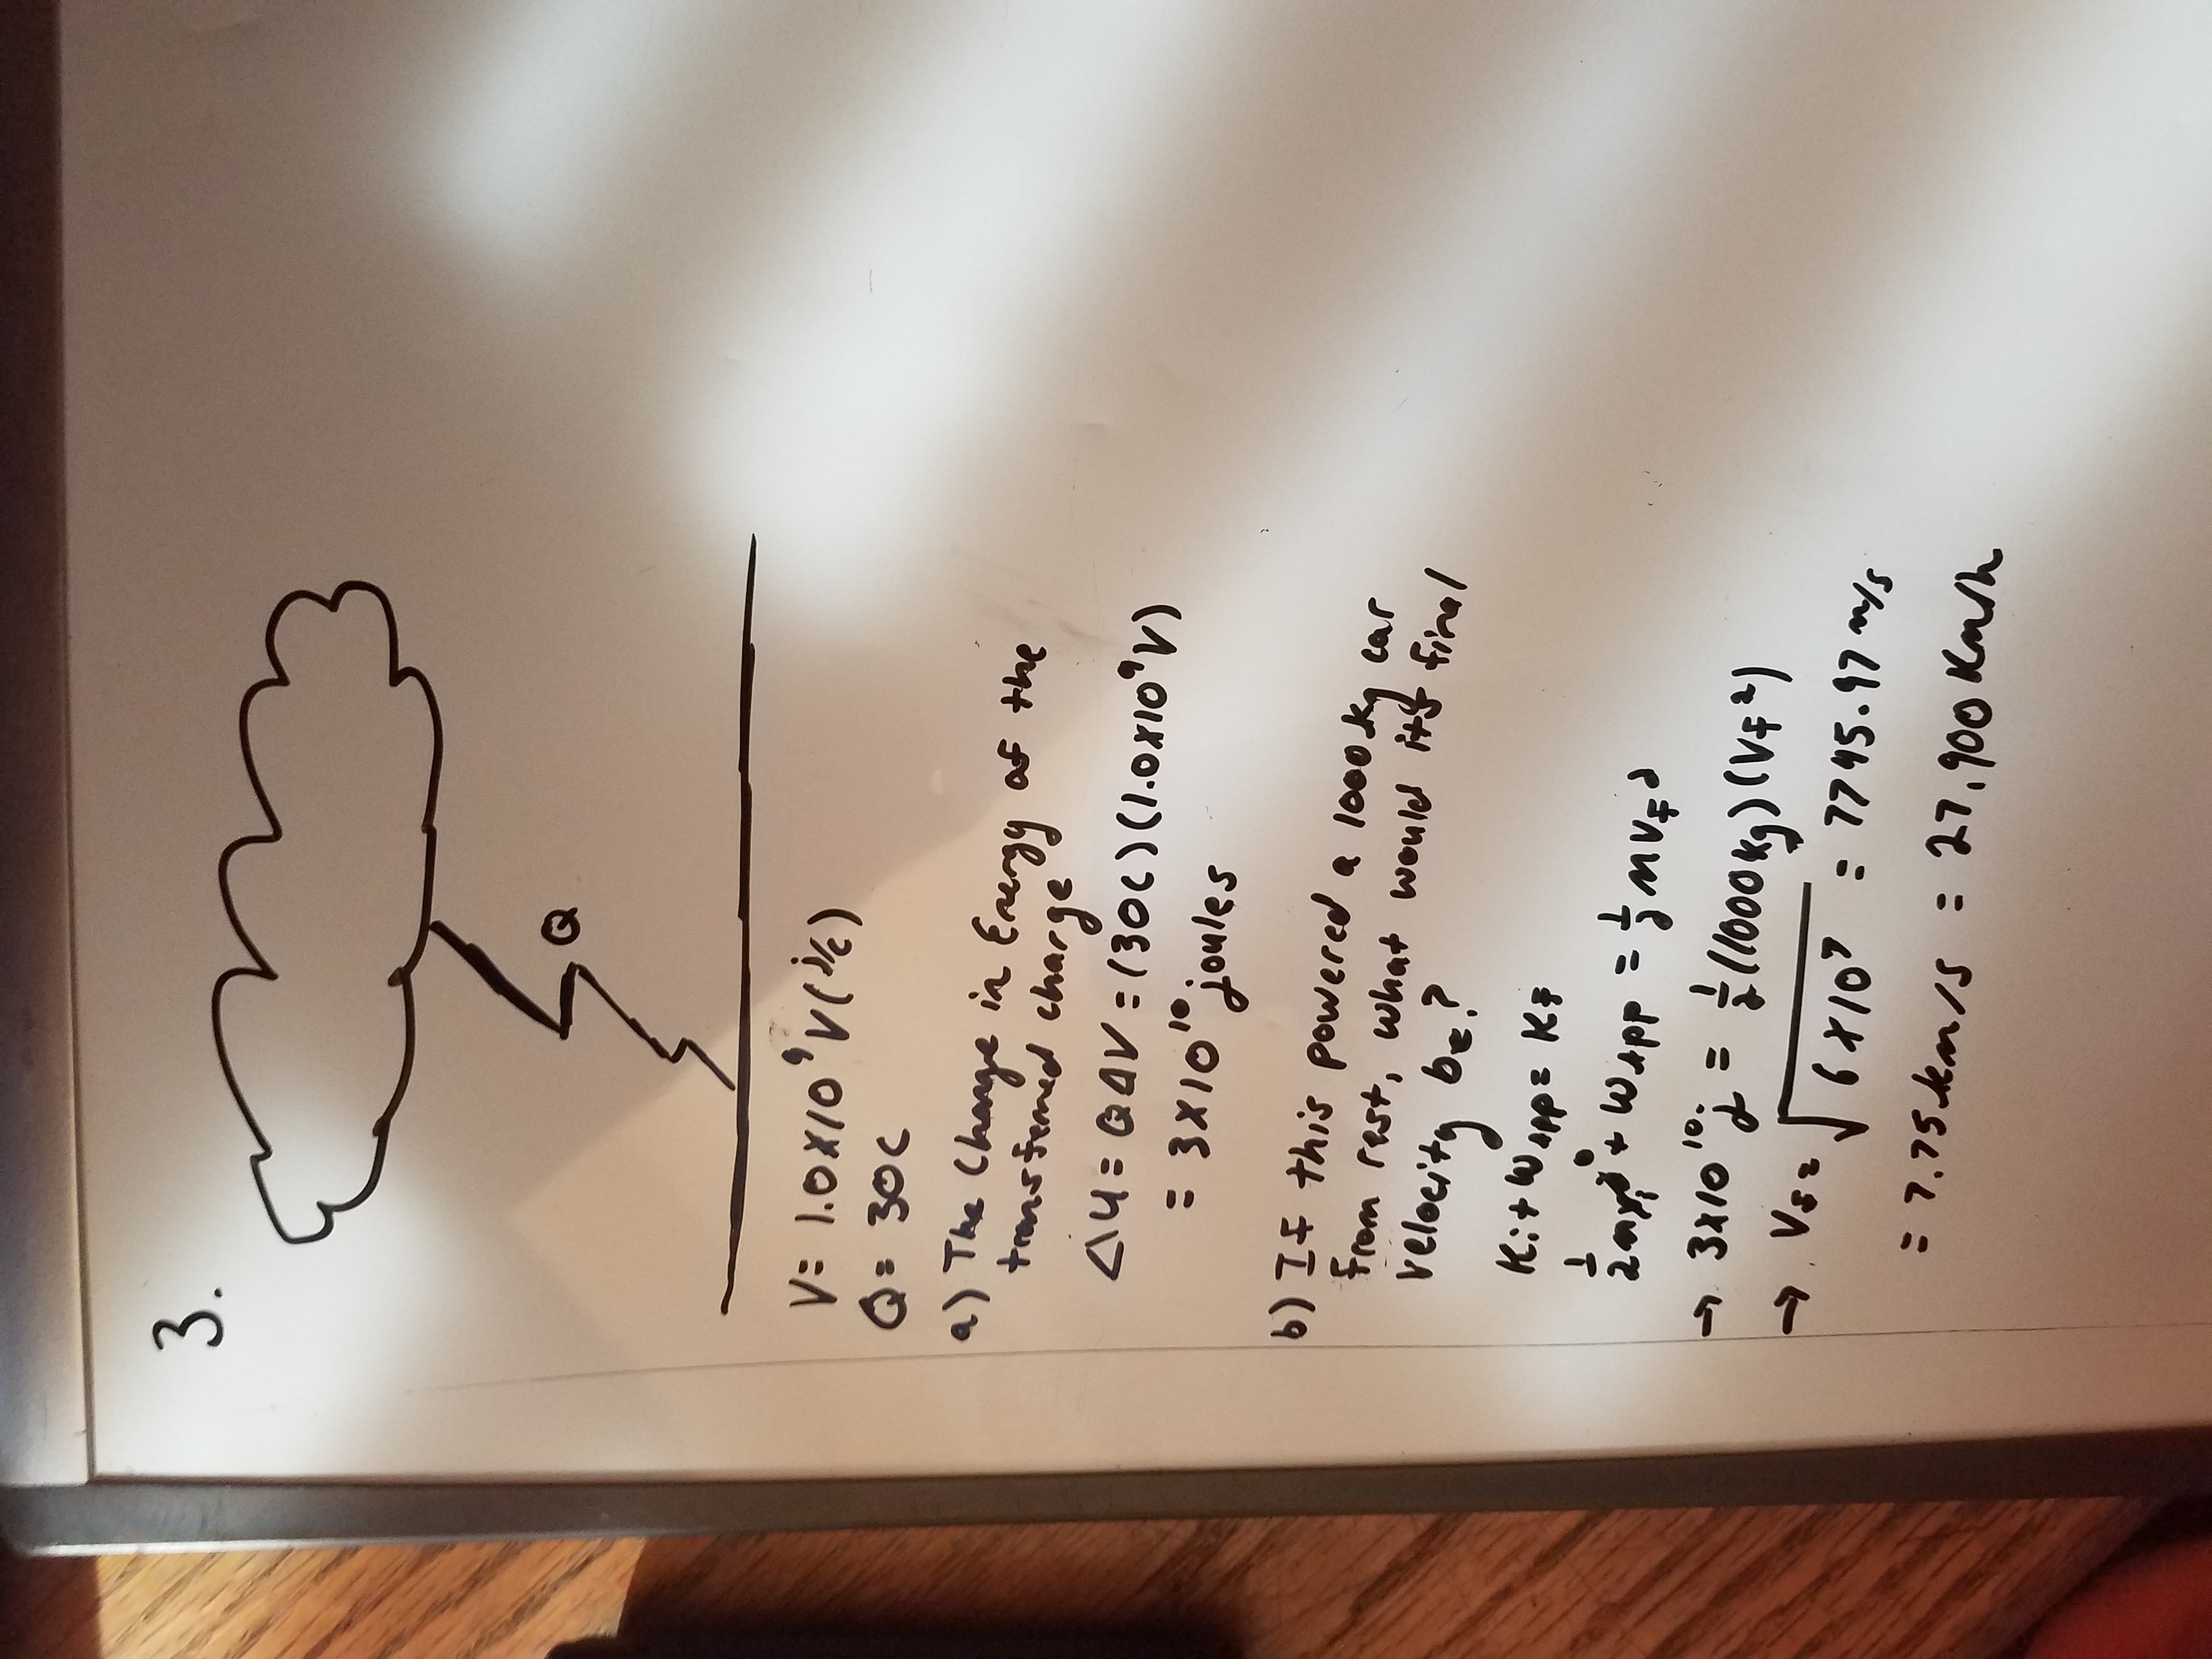 3.
Q
V= 1.0x10⁹ V (j/c)
Q= 30C
a) The Change in Energy of the
transferred charge
ΔU = QΔV = (30C)(1.0x10⁹V)
= 3x10¹⁰ joules
b) If this powered a 1000kg car
from rest, what would its final
velocity be?
Ki + WApp = Kf
½mvi²⁰ + WApp = ½mvf²
→ 3x10¹⁰j = ½(1000kg)(Vf²)
→ Vf = √6x10⁷ = 7745.97 m/s
= 7.75km/s = 27,900 Km/h